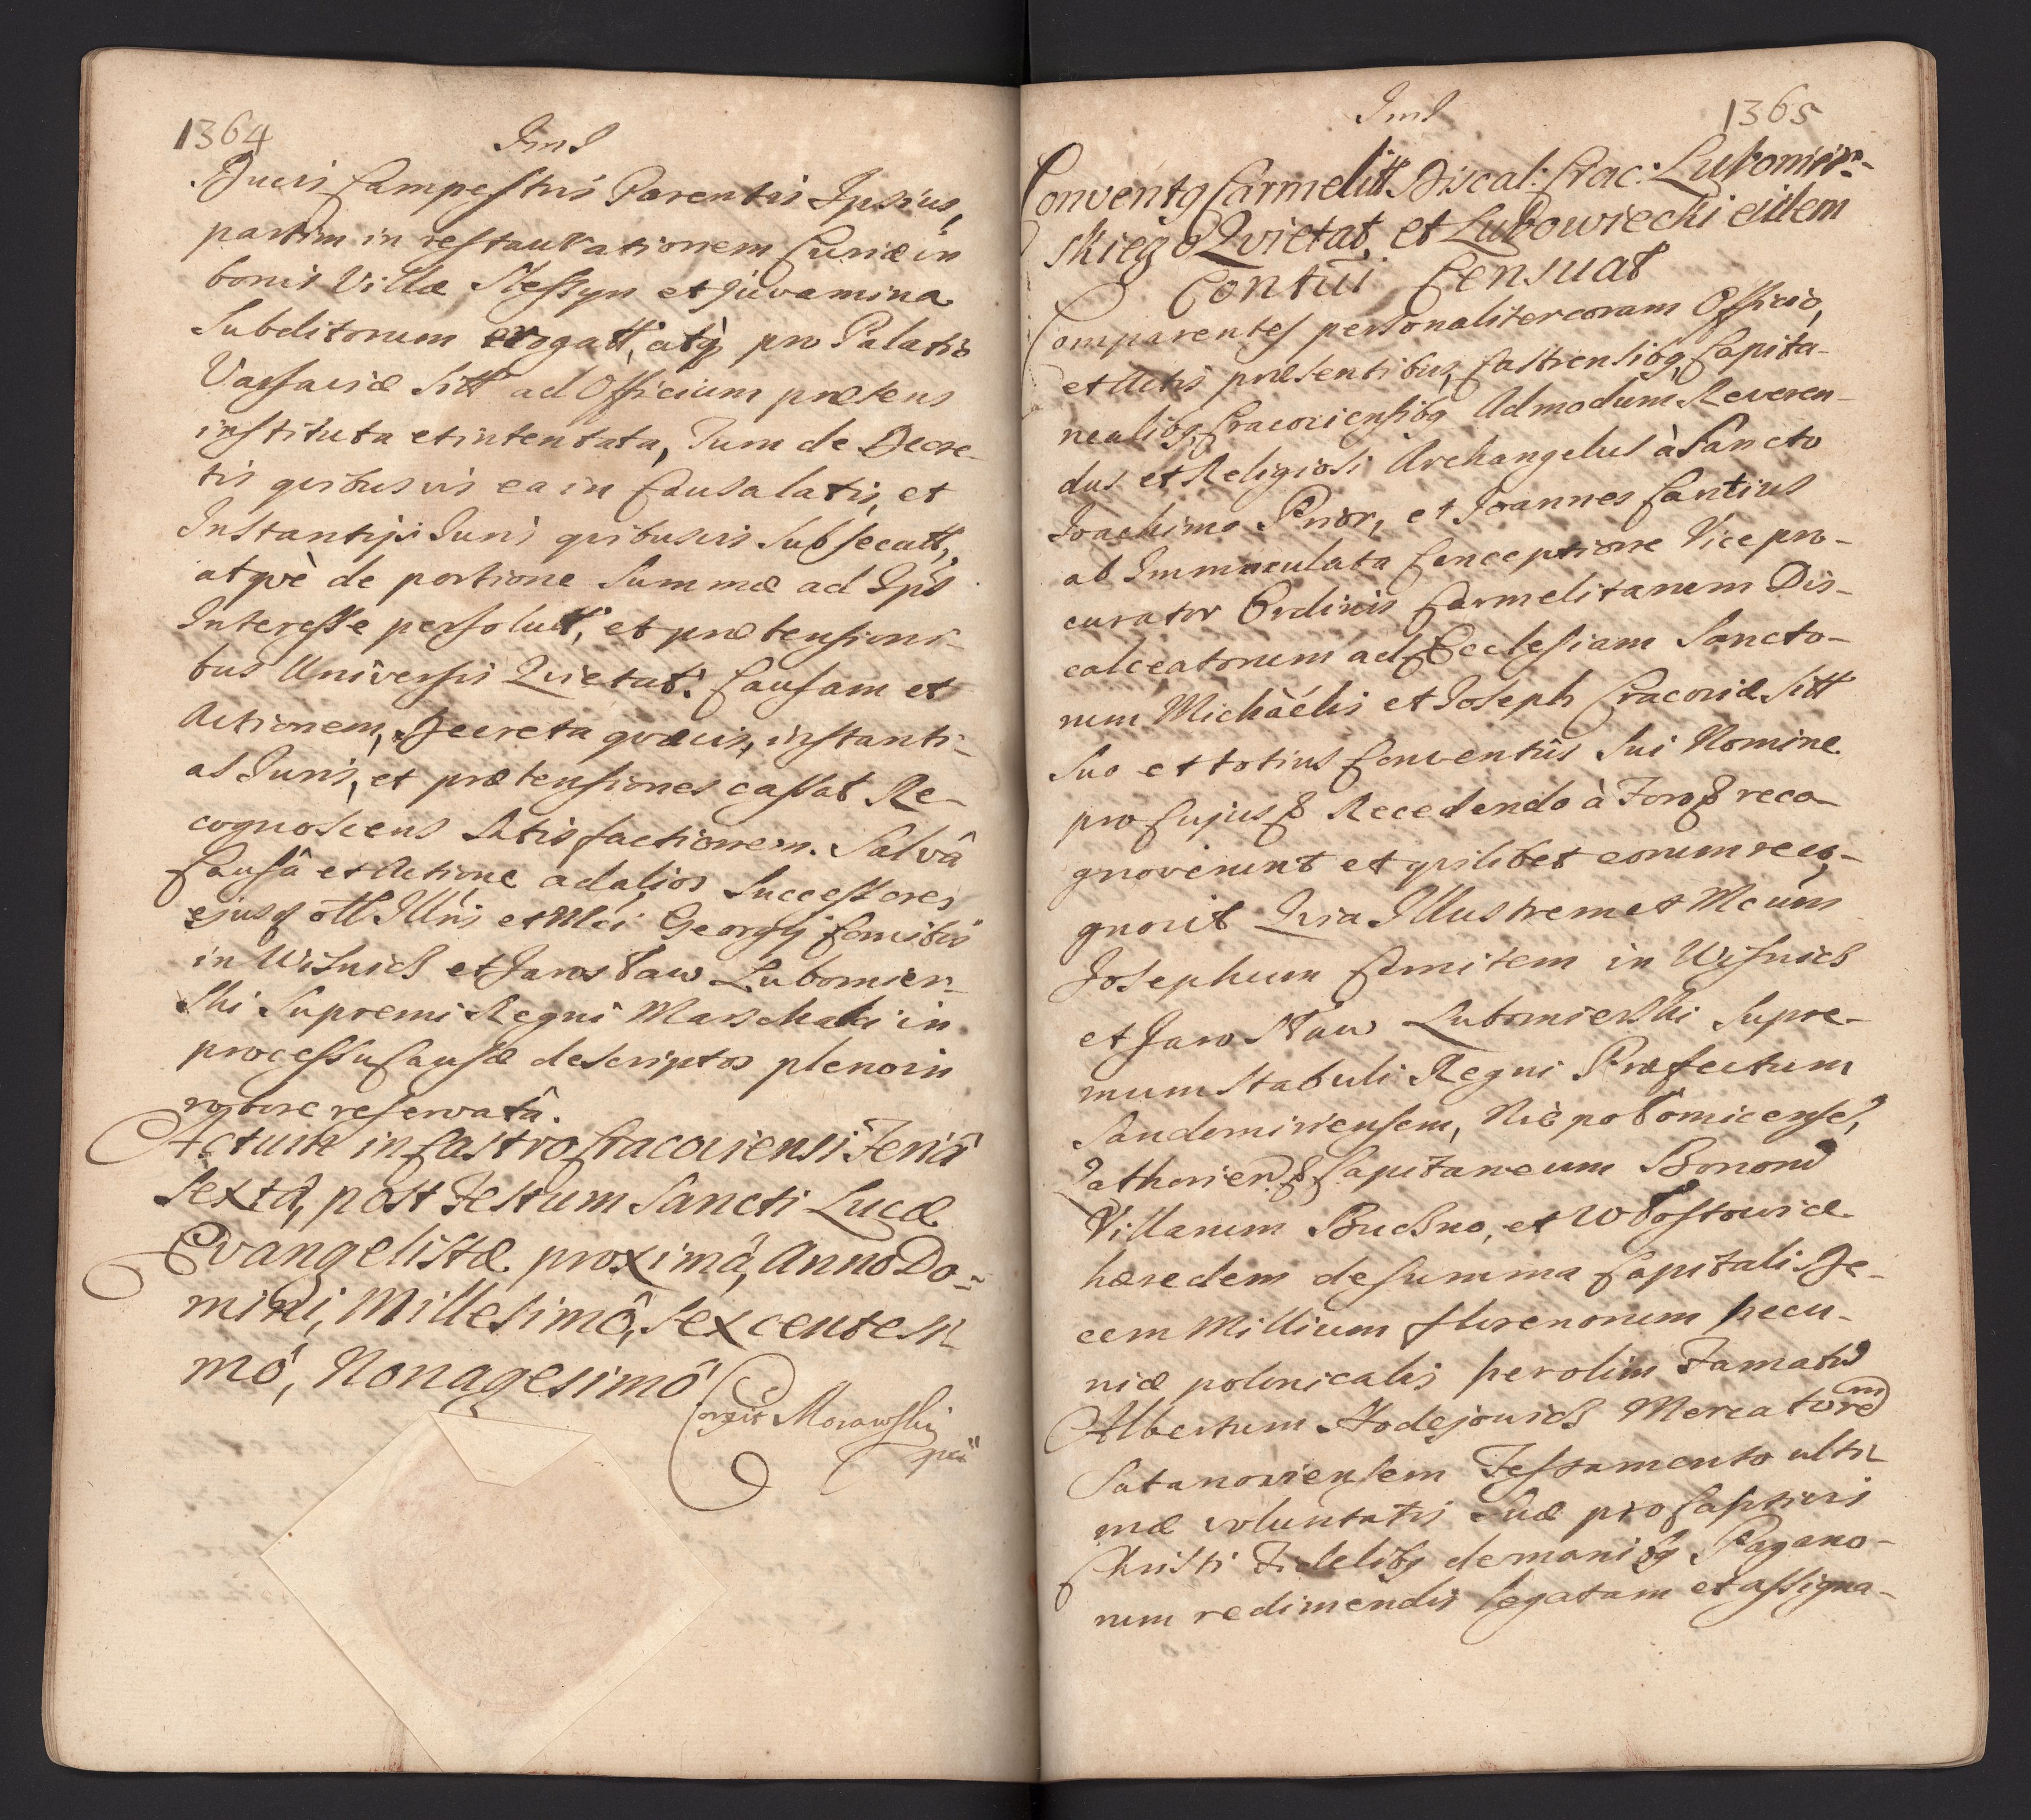 1364
Jml
Ducis Campestris Parentis Ipsius,
partim in restaurationem Curiæ in
bonis Villæ Slessyn et juvamina
Subditorum erogatt, atq pro Palatio
Varsaviæ Sitt ad Officium prætens
instituta et intentata, Tum de Decre-
tis quibusvis ea in Causa latis, et
Instantijs Juris quibusvis Subsecutt,
atqvè de portione Summæ ad Ips
Interesse persolutt, et prætensioni-
bus Universis Qvietat: Causam et
Actionem, Decreta qvævis, instanti-
as Juris, et prætensiones cassat Re-
cognoscens Satisfactionem. Salvâ
Causâ et Actione ad alios Successores
ejusq oll Illris et Mci Georgij Comitis
in Wisnicz et Jarosław Lubomier-
ski Supremi Regni Marschalci in
processu Causæ descriptos pleno in
robore reservatâ.
Actum in Castro Cracoviensi Feriâ
Sextâ, post Festum Sancti Lucæ
Evangelistæ proximâ, Anno Do-
mini, Millesimô, Sexcentesi-
mô, Nonagesimô
Corrit Morawski
mp
Jml
1365
Conventq Carmelitt Discal: Crac: Lubomirr-
skiego Qvietat, et Lubowiecki eidem
Contui Censuat
Comparentes personaliter coram Officio,
et Actis præsentibus, Castrensibq, Capita-
nealibq, Cracoviensibq Admodum Reveren-
dus et Religiosi Archangelus à Sancto
Joachimo Prior, et Joannes Cantius
ab Immaculata Conceptione Vice pro-
curator Ordinis Carmelitarum Dis-
calceatorum ad Ecclesiam Sancto-
rum Michàélis et Joseph Cracoviæ Sitt
Suo et totius Conventûs Sui Nomine
pro Cujus & Recedendo à Foro & reco-
gnoverunt et qvilibet eorum reco-
gnovit Qvia Illustrem et Mcum
Josephum Comitem in Wisnicz
et Jarosław Lubomierski Supre-
mum Stabuli Regni Præfectum
Sandomiriensem, Niepołomicense,
Zathorien & Capitaneum Bonorum
Villarum Buczno, et Włostowice
hæredem de summa Capitali De-
cem Millium florenorum pecu-
niæ polonicalis per olim Famatum
Albertum Hodejowicz Mercatorem
Satanoviensem Testamento ulti-
mæ voluntatis Suæ pro Captivis
Christi Fidelibq de manibq Pagano-
rum redimendis legatam et assigna-